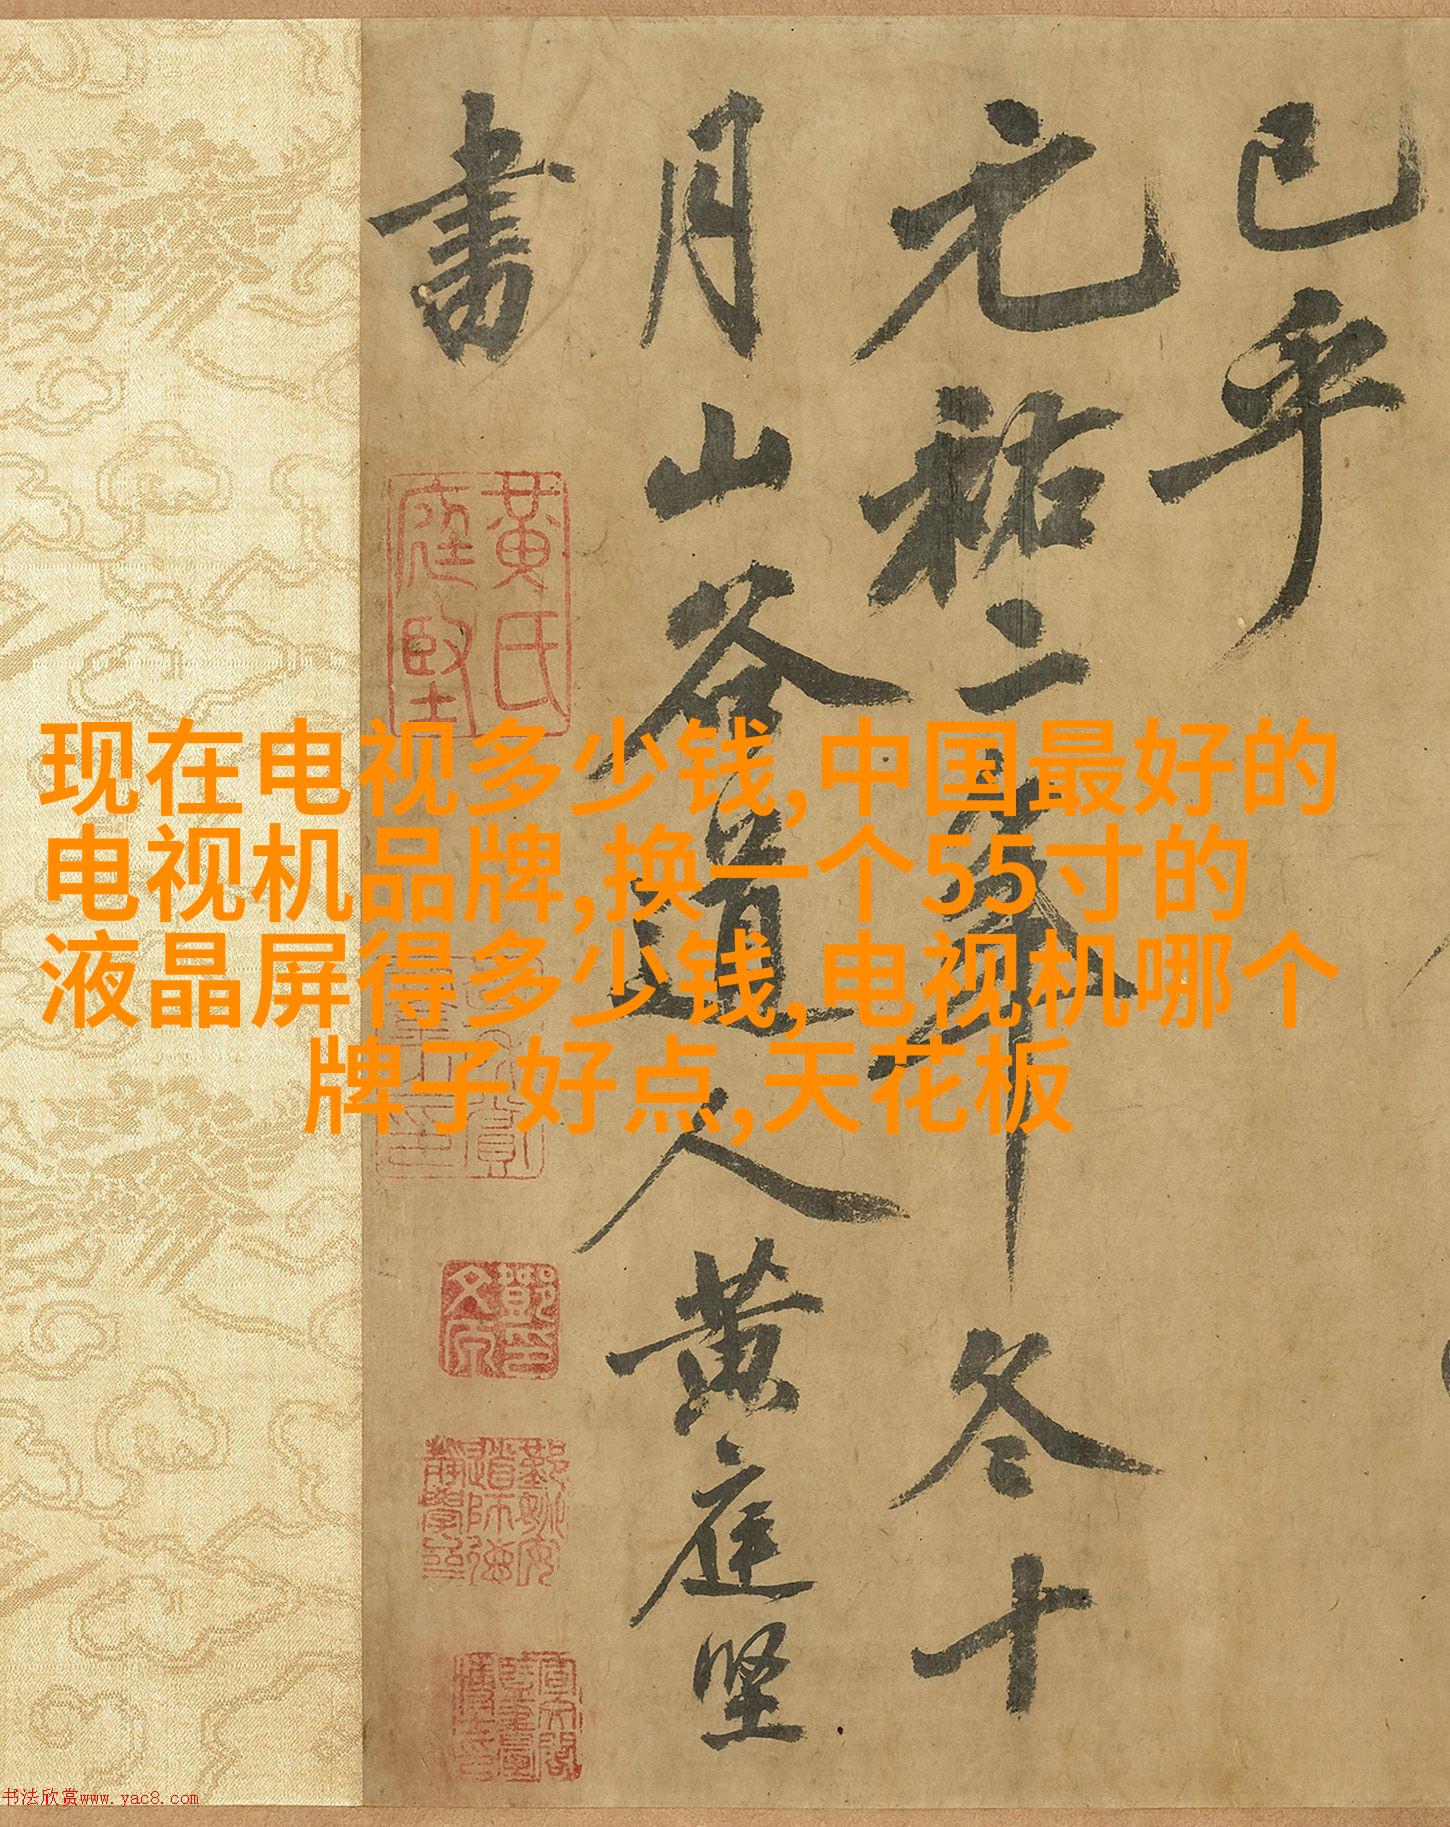 已乎
元祐二年冬十
月山谷道人黄庭坚
書
黄氏
庭堅
现在电视多少钱,中国最好的
电视机品牌,换一个55寸的
液晶屏得多少钱,电视机哪个
牌子好点,天花板
书法欣赏www.yac8.com